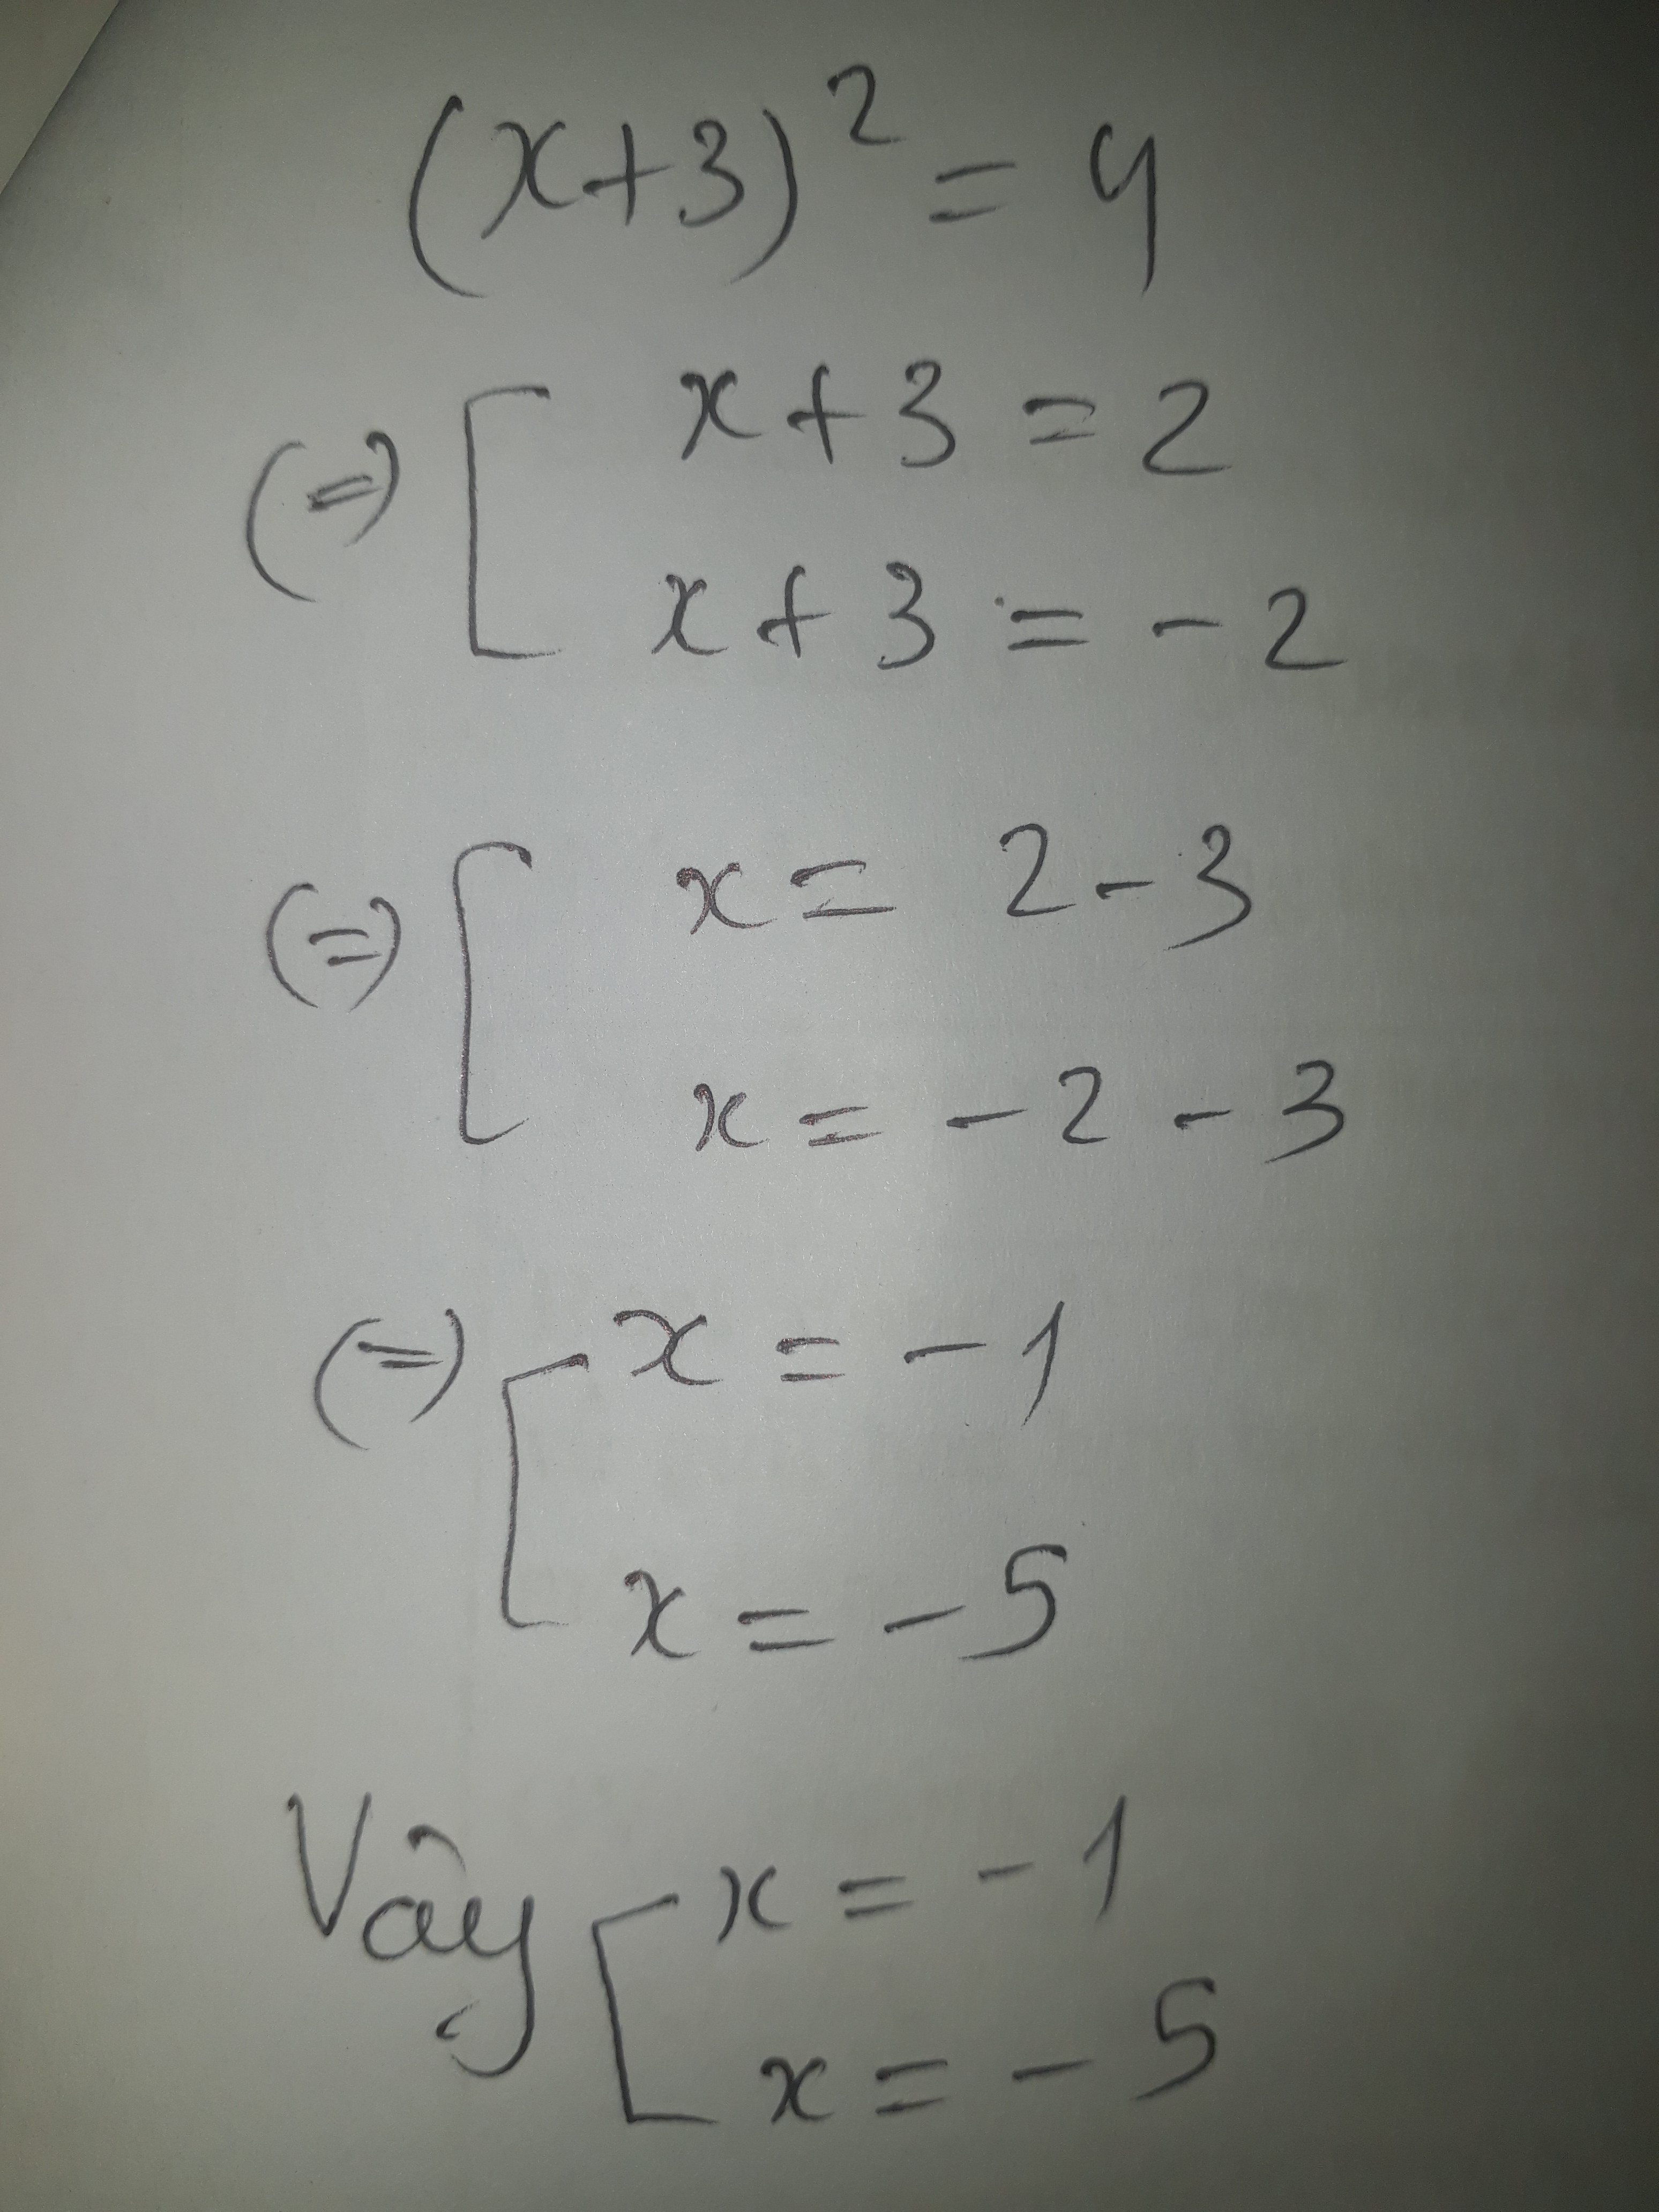 (x+3)² = 4
(=) [ x+3 = 2
x+3 = -2
(=) [ x = 2-3
x = -2-3
(=) [ x = -1
x = -5
Vậy [ x = -1
x = -5